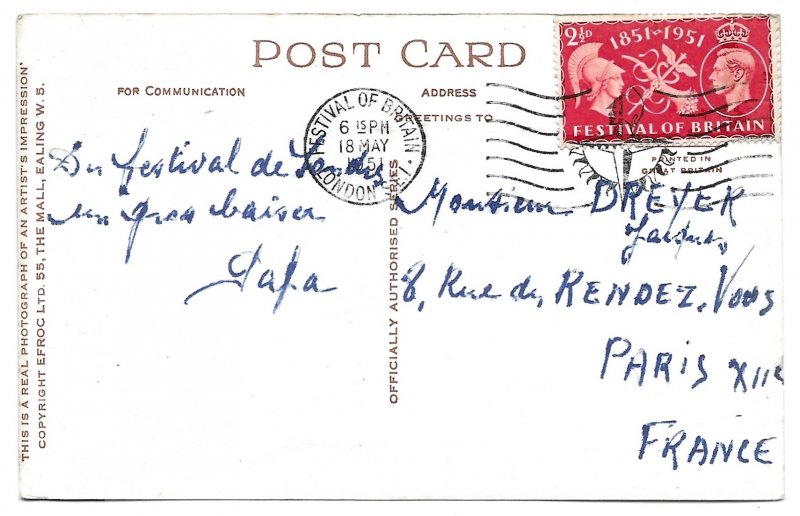 POST CARD
FOR COMMUNICATION
ADDRESS
GREETINGS TO
2½D
1851-1951
FESTIVAL OF BRITAIN
PRINTED IN
GREAT BRITAIN
FESTIVAL OF BRITAIN
6 15 PM
18 MAY
1951
LONDON
Du festival de Londres
un gros baiser
Papa
Monsieur DREYER
Jacques
8, Rue du RENDEZ-VOUS
PARIS XIIe
FRANCE
THIS IS A REAL PHOTOGRAPH OF AN ARTIST'S IMPRESSION'
COPYRIGHT EFROC LTD. 55, THE MALL, EALING W. 5.
OFFICIALLY AUTHORISED SERIES